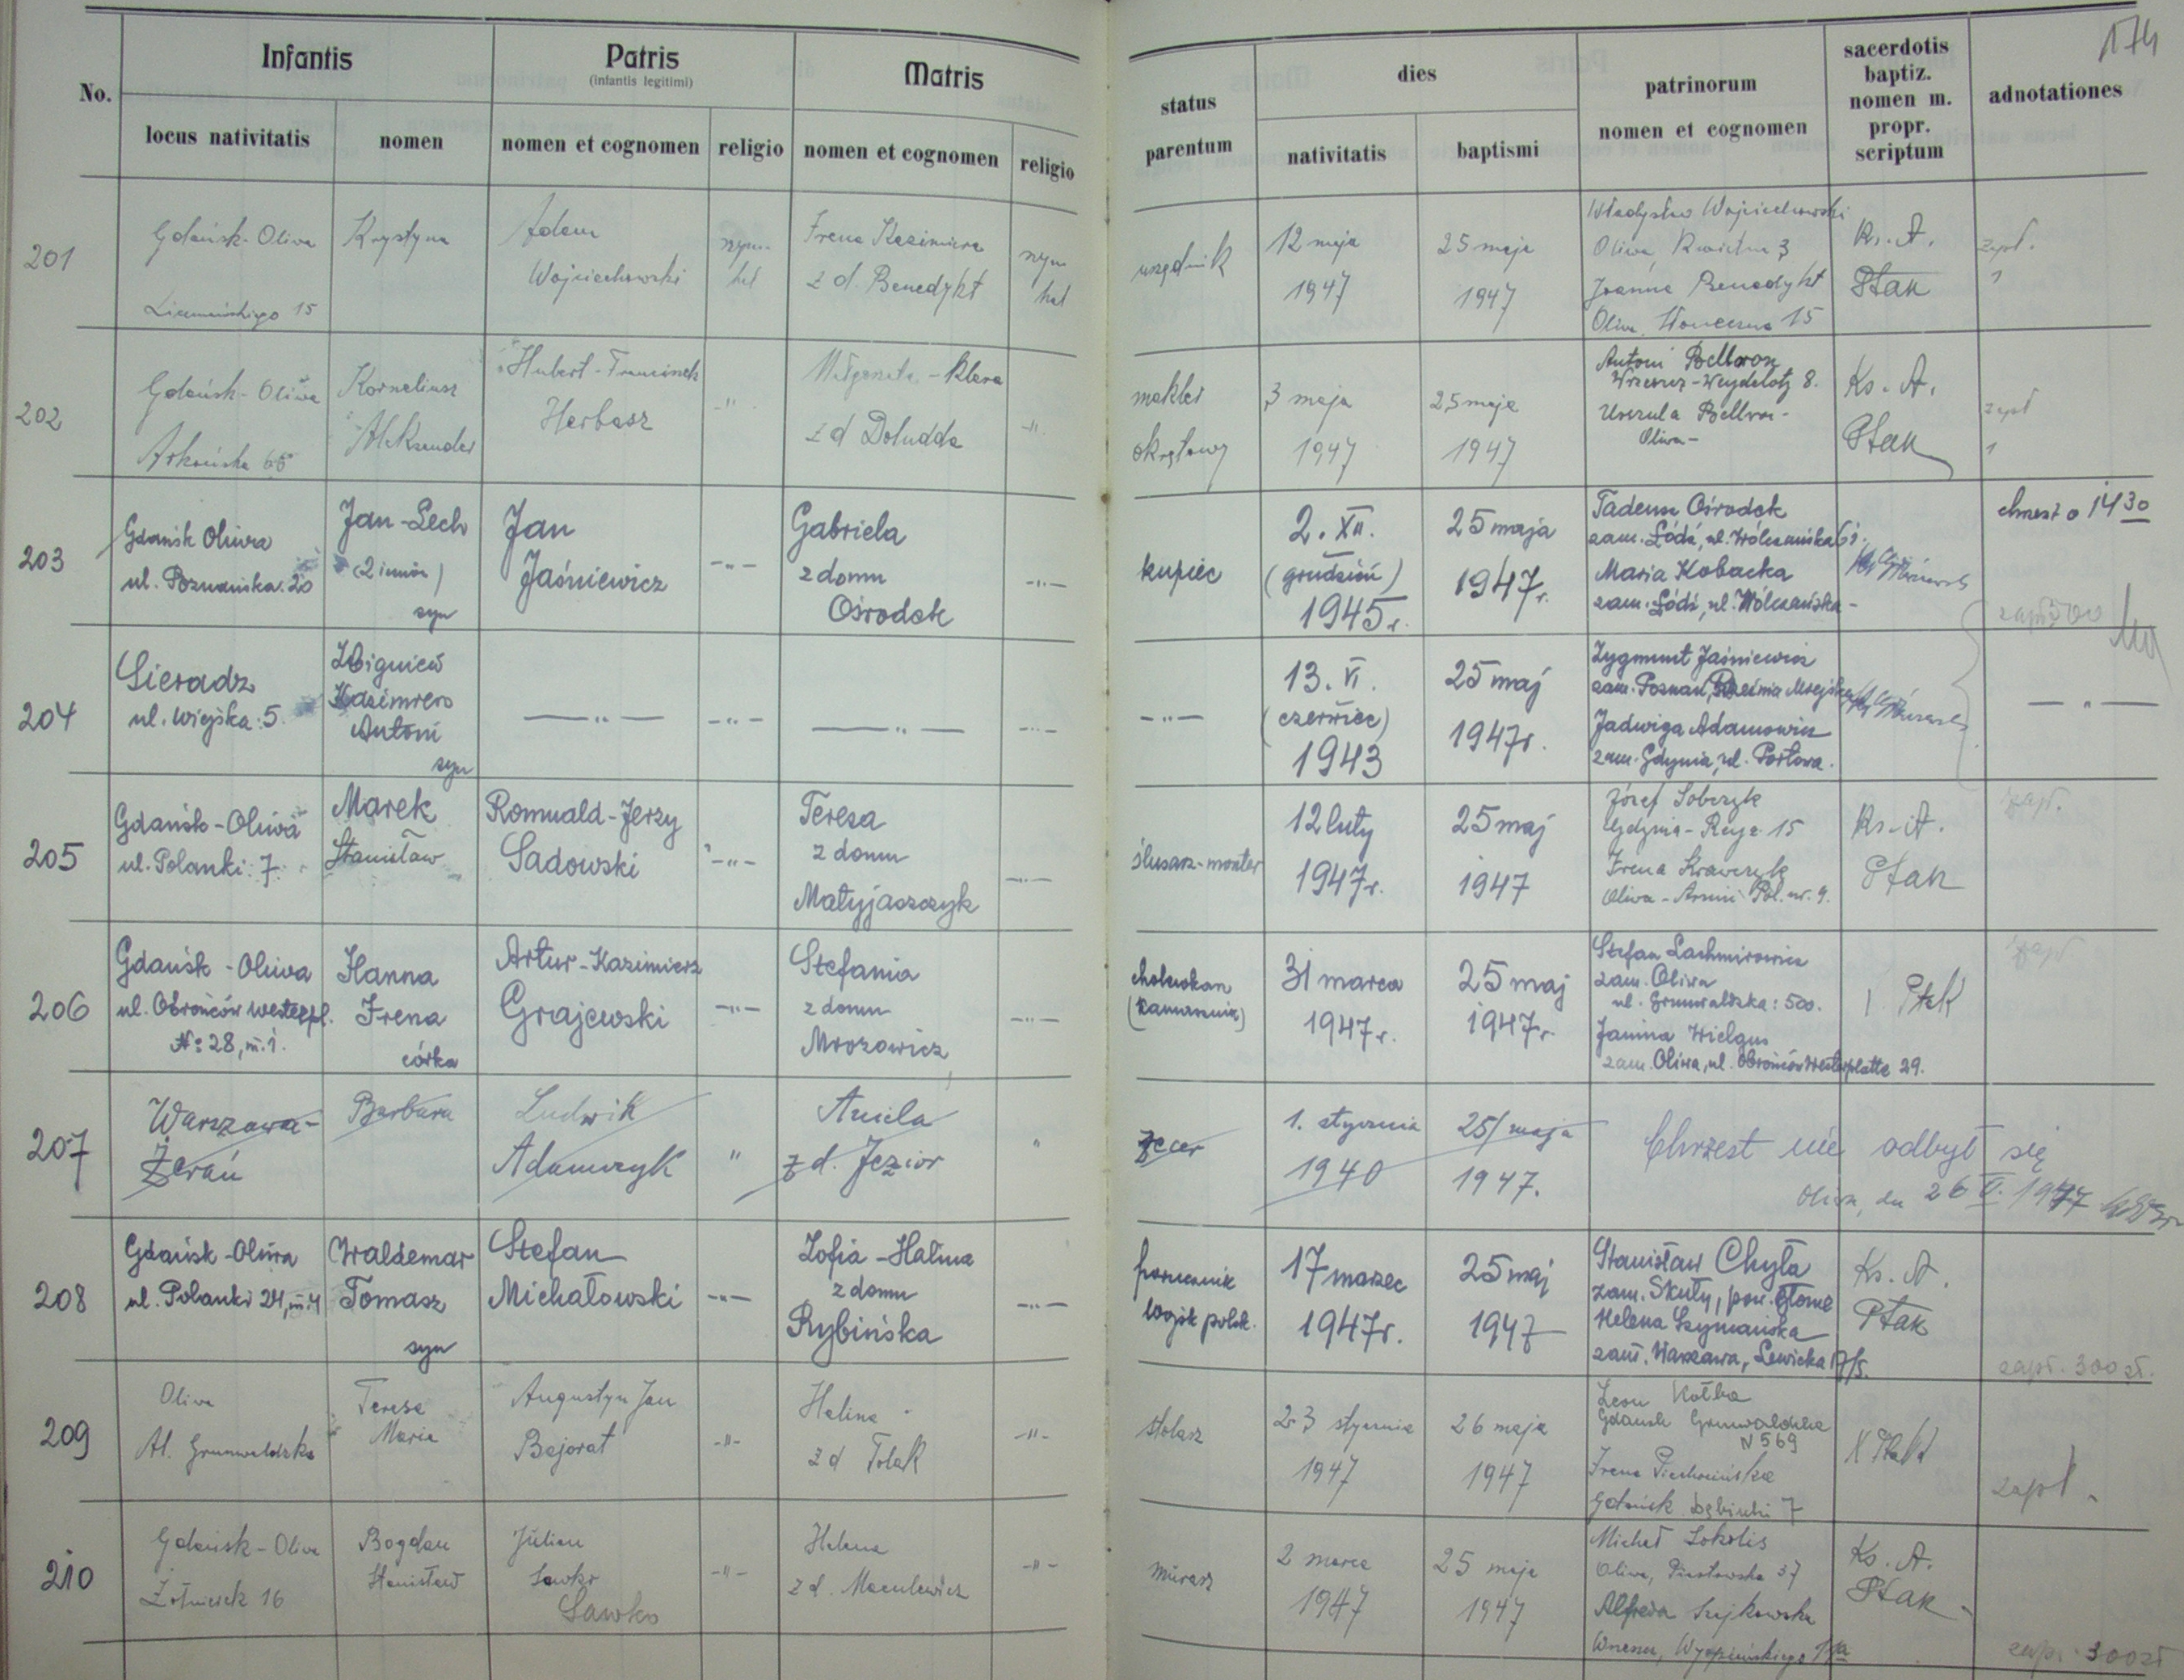 174
No.
Infantis
Patris
(infantis legitimi)
Matris
status parentum
dies
patrinorum
nomen et cognomen
sacerdotis
baptiz.
nomen m.
propr.
scriptum
adnotationes
locus nativitatis
nomen
nomen et cognomen
religio
nomen et cognomen
religio
nativitatis
baptismi
201
Gdańsk-Oliwa
Krystyna
Adam
Wojciechowski
rzym
kat
Irena Kazimiera
z d. Benedykt
rzym
kat
urzędnik
12 maja
1947
25 maja
1947
Władysław Wojciechowski
Oliwa, Kwietna 3
Joanna Benedykt
Oliwa 15
Ks. A.
Ptak
zapł.
202
Gdańsk-Oliwa
Arkońska 65
Korneliusz
Aleksander
Hubert-Franciszek
Herbasz
-"-
Małgorzata-Klara
z d Doludda
-"-
makler
okrętowy
3 maja
1947
25 maja
1947
Antoni
8.
Urszula
Oliwa-
Ks. A.
Ptak
zapł
203
Gdańsk Oliwa
ul. Poznańska: 20
Jan-Lech
(2 imion)
syn
Jan
Jaśniewicz
-"-
Gabriela
z domu
Ośrodek
-"-
kupiec
2. XII.
(grudzień)
1945 r.
25 maja
1947 r.
Tadeusz Ośrodek
zam. Łódź, ul. Wólczańska
Maria Kobacka
zam. Łódź, ul. Wólczańska-
chrzest o 14 30
zapł 500
204
Sieradz
ul. Wiejska: 5
Zbigniew
Kazimierz
Antoni
syn
-"-
-"-
-"-
-"-
-"-
13. VI.
(czerwiec)
1943
25 maj
1947 r.
Zygmunt Jaśniewicz
zam. Poznań, Rzeźnia Miejska
Jadwiga Adamowicz
zam. Gdynia, ul. Portowa.
-"-
205
Gdańsk-Oliwa
ul. Polanki: 7
Marek
Stanisław
Romuald-Jerzy
Sadowski
-"-
Teresa
z domu
Matyjaszczyk
-"-
ślusarz-monter
12 luty
1947 r.
25 maj
1947
Józef Sobczyk
Gdynia- 15
Irena Krawczyk
Oliwa- Armii Pol. nr. 9.
Ks. A.
Ptak
zapł.
206
Gdańsk-Oliwa
ul. Obrońców Westerpl.
No 28, m. 1.
Hanna
Irena
córka
Artur-Kazimierz
Grajewski
-"-
Stefania
z domu
Mrozowicz
-"-
cholewkarz
31 marca
1947 r.
25 maj
1947 r.
Stefan Lachmirowicz
zam. Oliwa
ul. Grunwaldzka: 500.
Janina Wielgus
zam. Oliwa, ul. Obrońców Westerplatte 29.
zapł
207
Warszawa-
Żerań
Barbara
Ludwik
Adamczyk
"
Aniela
z d. Jezior
"
zecer
1. stycznia
1940
25/maja
1947.
Chrzest nie odbył się
Oliwa, dn 26 V. 1947
208
Gdańsk-Oliwa
ul. Polanki 24, m. 4
Waldemar
Tomasz
syn
Stefan
Michałowski
-"-
Zofia-Halina
z domu
Rybińska
-"-
porucznik
wojsk polsk.
17 marzec
1947 r.
25 maj
1947
Stanisław Chyła
zam. Skuły, pow.
Helena Szymańska
zam. Warszawa, Lewicka 17/5.
Ks. A.
Ptak
zapł. 300 zł.
209
Oliwa
Al. Grunwaldzka
Teresa
Maria
Augustyn Jan
Bejorat
-"-
Halina
z d Tolak
-"-
stolarz
23 stycznia
1947
26 maja
1947
Leon Kołka
Gdańsk Grunwaldzka
N 569
Irena Piechocińska
Gdańsk Dębinki 7
X Ptak
zapł.
210
Gdańsk-Oliwa
16
Bogdan
Stanisław
Julian
Sawko
Sawko
-"-
Helena
z d. Maculewicz
-"-
murarz
2 marca
1947
25 maja
1947
Michał Sokolis
Oliwa, Piastowska 37
Alfreda Szajkowska
Wrzeszcz, Wyspiańskiego
Ks. A.
Ptak
zapł. 300 zł